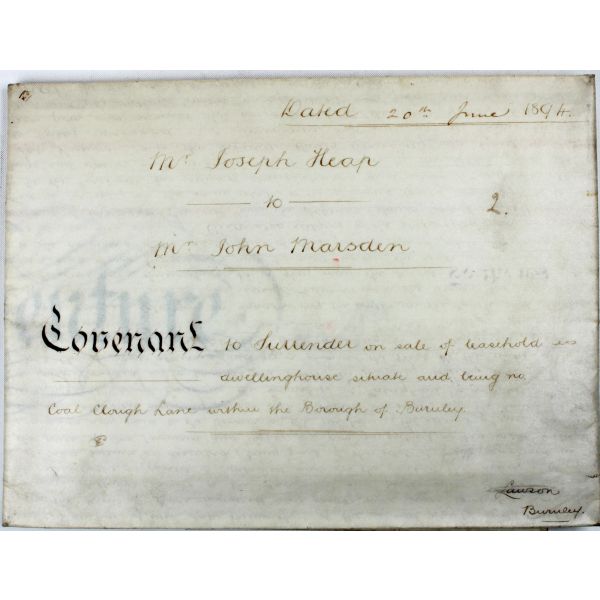 Dated 20th June 1894.
Mr Joseph Heap
to
2.
Mr John Marsden
Covenant to Surrender on sale of leasehold
dwellinghouse situate and being no
Coal Clough Lane within the Borough of Burnley
Lawson
Burnley.